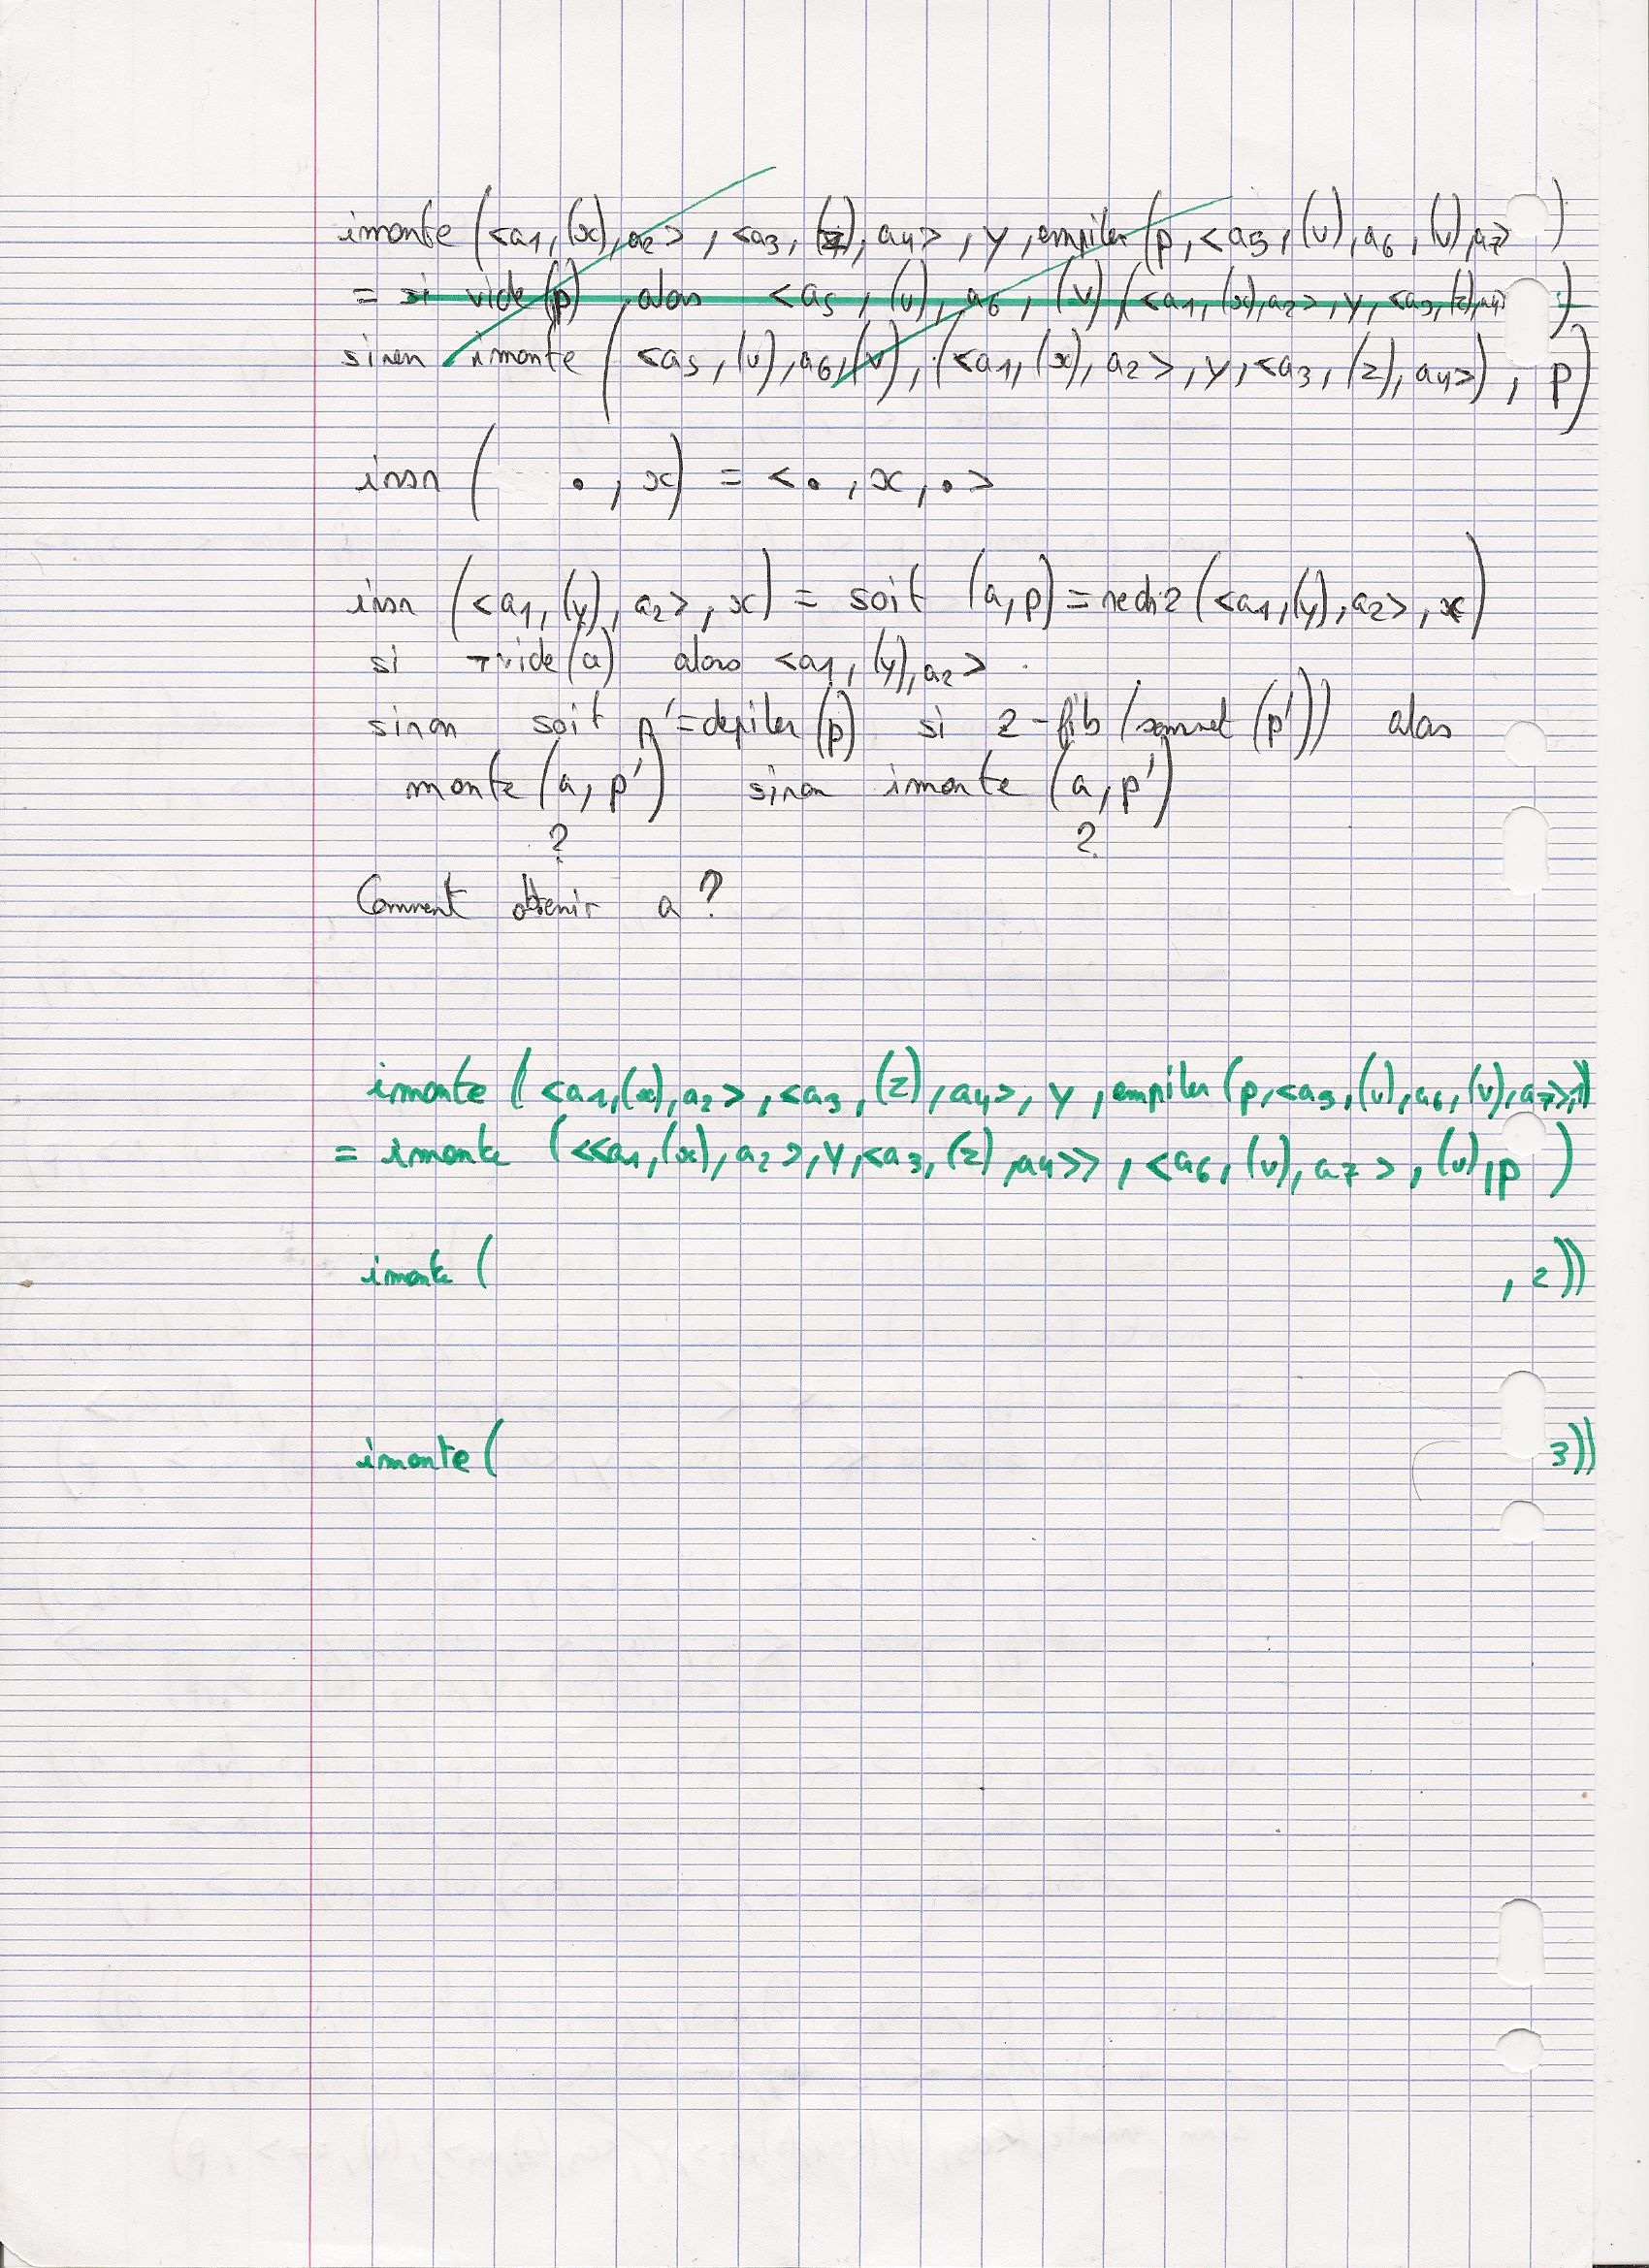 imonte (<a1, (x), a2>, <a3, (z), a4>, y, empiler (p, <a5, (u), a6, (v), a7> )
= si vide (p) alors <a5, (u), a6, (v) (<a1, (x), a2>, y, <a3, (z), a4> )
sinon imonte ( <a5, (u), a6, (v), (<a1, (x), a2>, y, <a3, (z), a4>), p)
insn ( • , x) = < • , x, • >
insn (<a1, (y), a2>, x) = soit (a, p) = rech2 (<a1, (y), a2>, x)
si ¬vide (a) alors <a1, (y), a2> .
sinon soit p' = depiler (p) si 2-fib (sommet (p')) alors
monte (a, p') sinon imonte (a, p')
? ?
Comment obtenir a ?
imonte (<a1, (x), a2>, <a3, (z), a4>, y, empiler (p, <a5, (u), a6, (v), a7>, 1))
= imonte (<<a1, (x), a2>, y, <a3, (z), a4>>, <a6, (v), a7>, (u), p )
imonte ( , 2))
imonte ( 3))